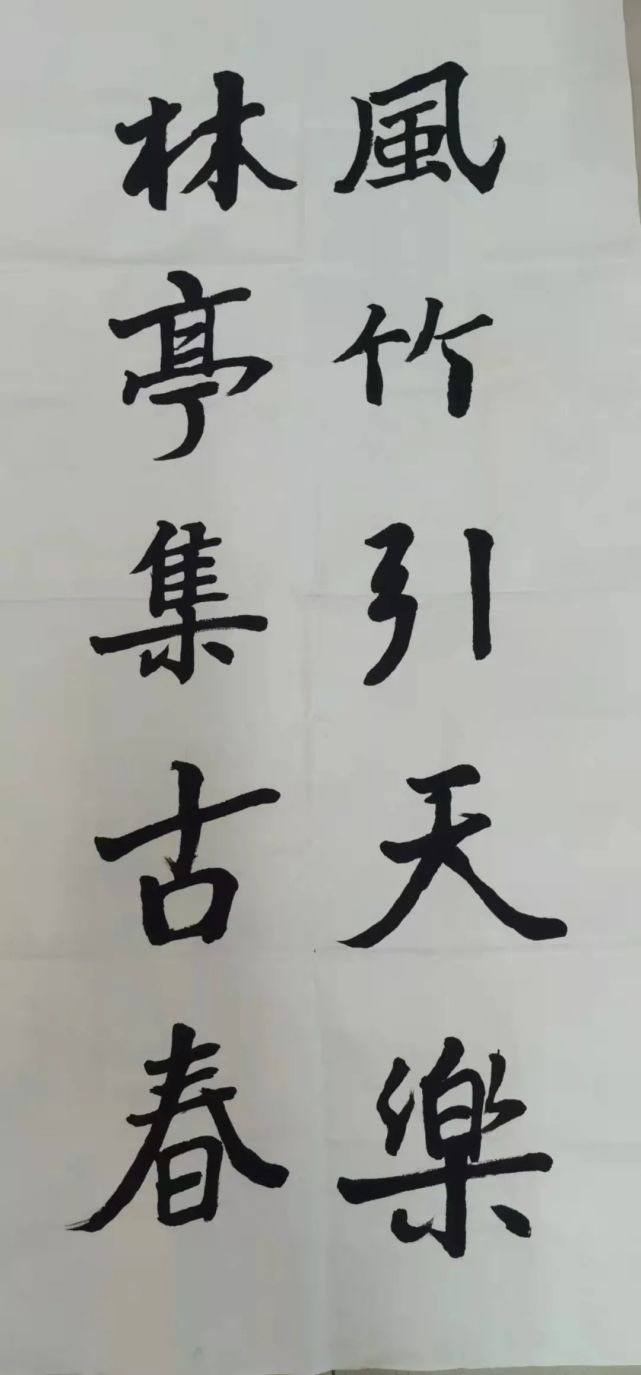 風竹引天樂
林亭集古春